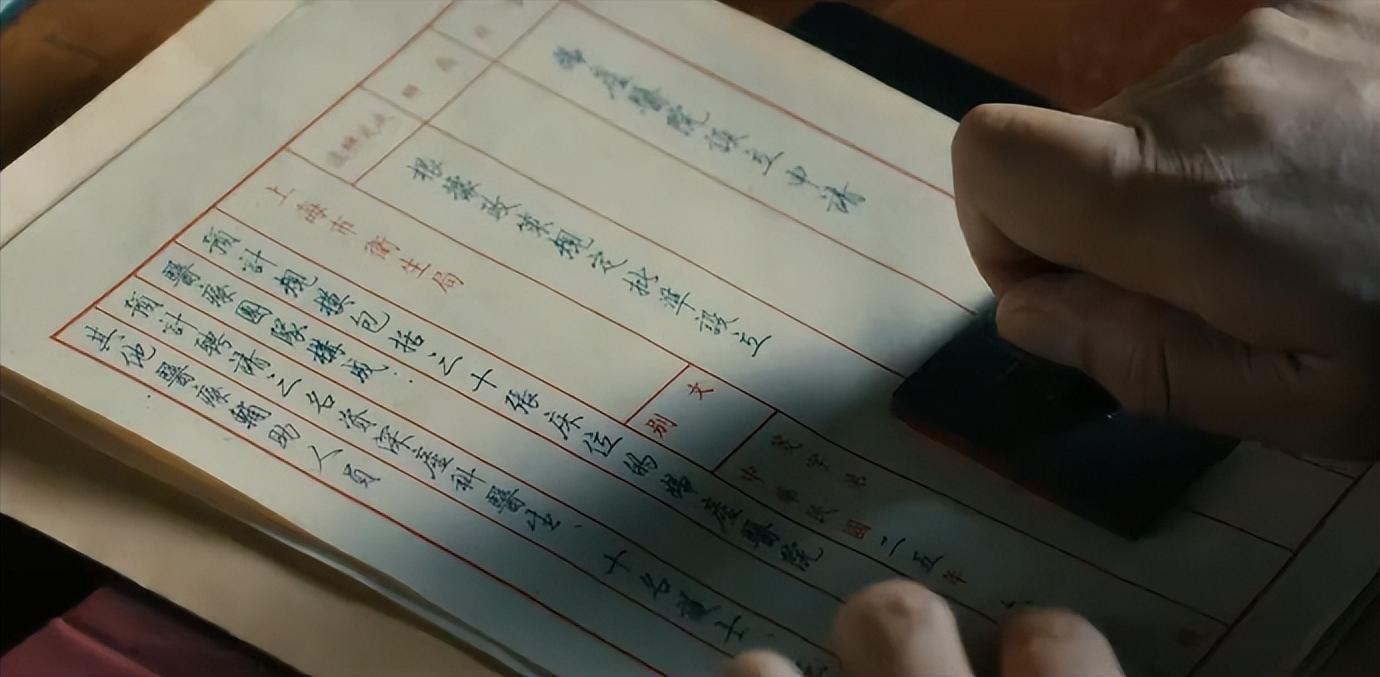 婦產醫院設立申請
根據政策規定批準設立
文別
字第
中華民國二五年
上海市衛生局
預計規模包括三十張床位的婦產醫院
醫療團隊構成:
預計聘請三名資深產科醫生、十名護士、
其他醫療輔助人員